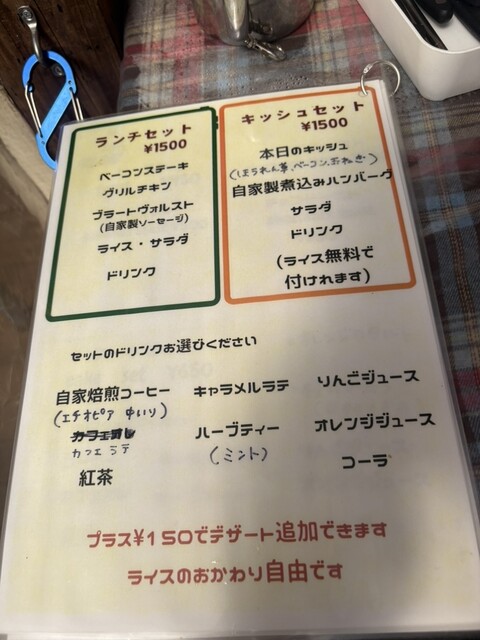 ランチセット
¥1500
ベーコンステーキ
グリルチキン
ブラートヴォルスト
(自家製ソーセージ)
ライス・サラダ
ドリンク
キッシュセット
¥1500
本日のキッシュ
(ほうれん草、ベーコン、玉ねぎ)
自家製煮込みハンバーグ
サラダ
ドリンク
(ライス無料で
付けれます)
セットのドリンクお選びください
自家焙煎コーヒー
(エチオピア 中いり)
カフェオレ
カフェラテ
紅茶
キャラメルラテ
ハーブティー
(ミント)
りんごジュース
オレンジジュース
コーラ
プラス¥150でデザート追加できます
ライスのおかわり自由です